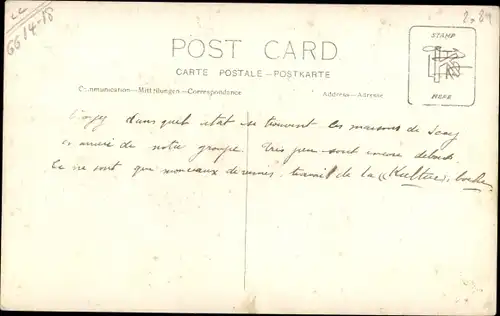 GG 14-18
2.89
POST CARD
CARTE POSTALE–POSTKARTE
Communication–Mitteilungen–Correspondence
Address–Adresse
STAMP
HERE
Voyez dans quel état se trouvent les maisons de
en arrière de notre groupe. Très peu sont encore debout
Ce ne sont que monceaux de ruines, travail de la "Kultur" boche